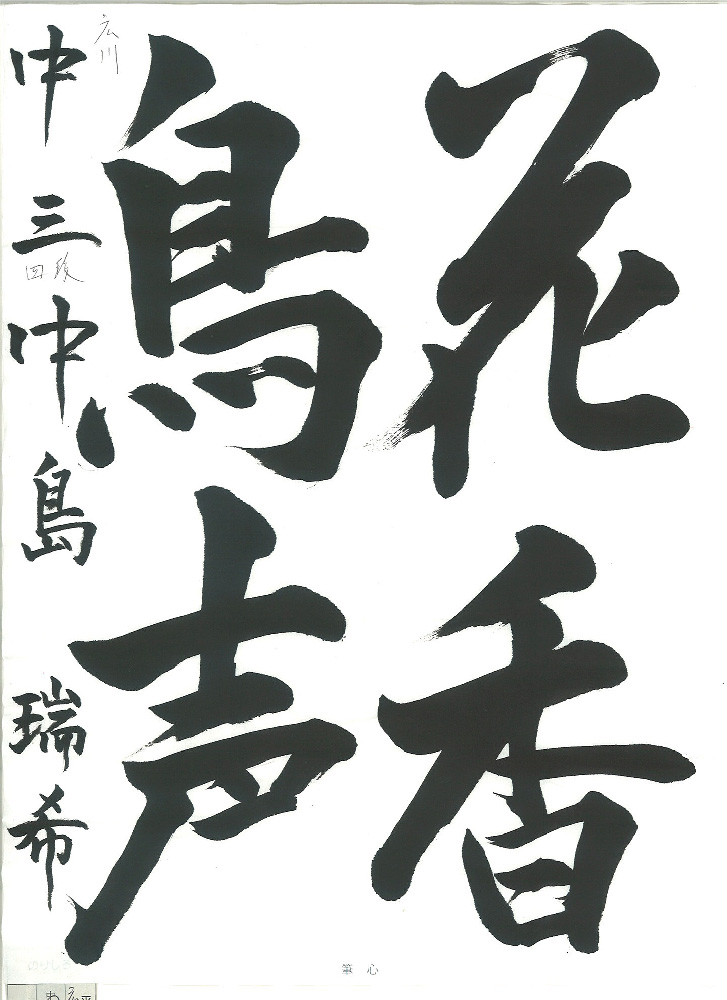 花香
鳥声
広川
中三 中島 瑞希
四段
筆心